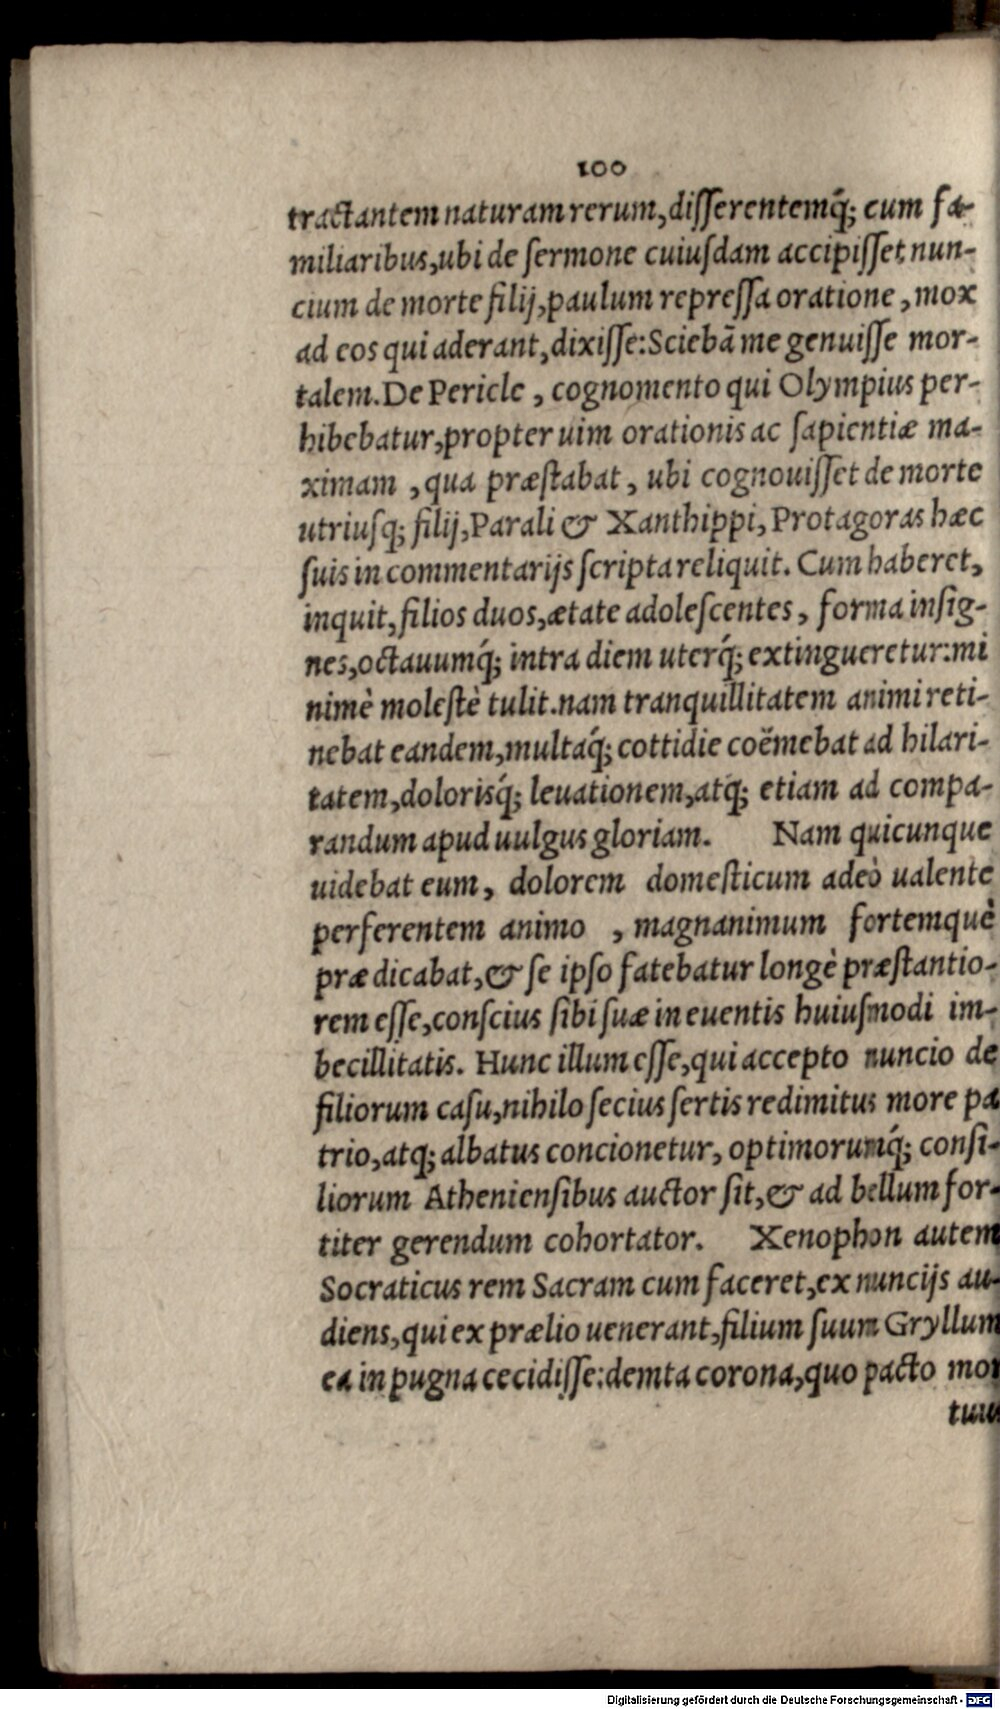 100
tractantem naturam rerum, disſerentemq́; cum fa-
miliaribus, ubi de ſermone cuiuſdam accipiſſet nun-
cium de morte filij, paulum repreſſa oratione, mox
ad eos qui aderant, dixiſſe: Sciebā me genuiſſe mor-
talem. De Pericle, cognomento qui Olympius per-
hibebatur, propter uim orationis ac ſapientiæ ma-
ximam, qua præſtabat, ubi cognouiſſet de morte
utriuſq; filij, Parali & Xanthippi, Protagoras hæc
ſuis in commentarijs ſcripta reliquit. Cum haberet,
inquit, filios duos, ætate adoleſcentes, forma inſig-
nes, octauumq́; intra diem uterq́; extingueretur: mi
nimè moleſtè tulit. nam tranquillitatem animi reti-
nebat eandem, multaq́; cottidie coëmebat ad hilari-
tatem, dolorisq́; leuationem, atq; etiam ad compa-
randum apud uulgus gloriam. Nam quicunque
uidebat eum, dolorem domeſticum adeò ualente
perferentem animo, magnanimum fortemquè
prædicabat, & ſe ipſo fatebatur longè præſtantio-
rem eſſe, conſcius ſibi ſuæ in euentis huiuſmodi im-
becillitatis. Hunc illum eſſe, qui accepto nuncio de
filiorum caſu, nihilo ſecius ſertis redimitus more pa
trio, atq; albatus concionetur, optimorumq́; conſi-
liorum Athenienſibus auctor ſit, & ad bellum for-
titer gerendum cohortator. Xenophon autem
Socraticus rem Sacram cum faceret, ex nuncijs au-
diens, qui ex prælio uenerant, filium ſuum Gryllum
ea in pugna cecidiſſe: demta corona, quo pacto mor
tuus
Digitalisierung gefördert durch die Deutsche Forschungsgemeinschaft - DFG